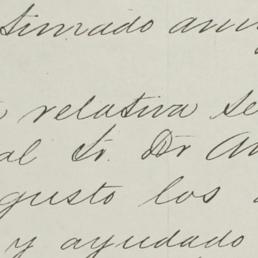 timado ami
relativa se
al Sr. Dr
gusto los
y ayudado